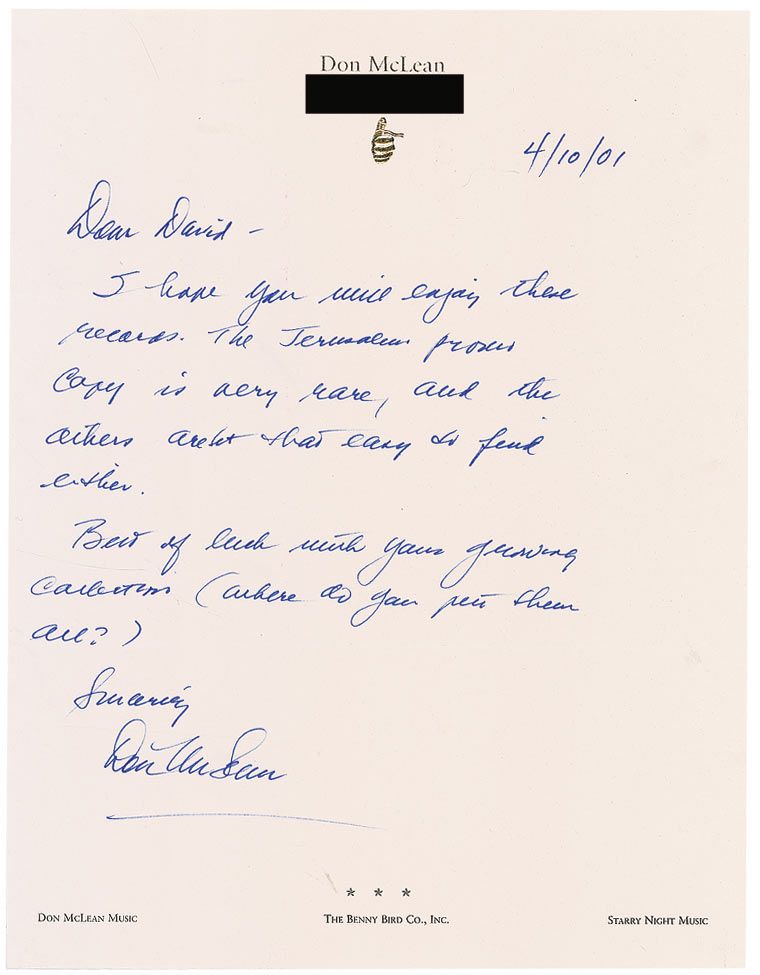 Don McLean
4/10/01
Dear David -
I hope you will enjoy these
records. The Jerusalem promo
copy is very rare, and the
others aren't that easy to find
either.
Best of luck with your growing
collection (where do you put them
all?)
Sincerely
Don McLean
* * *
DON MCLEAN MUSIC
THE BENNY BIRD CO., INC.
STARRY NIGHT MUSIC